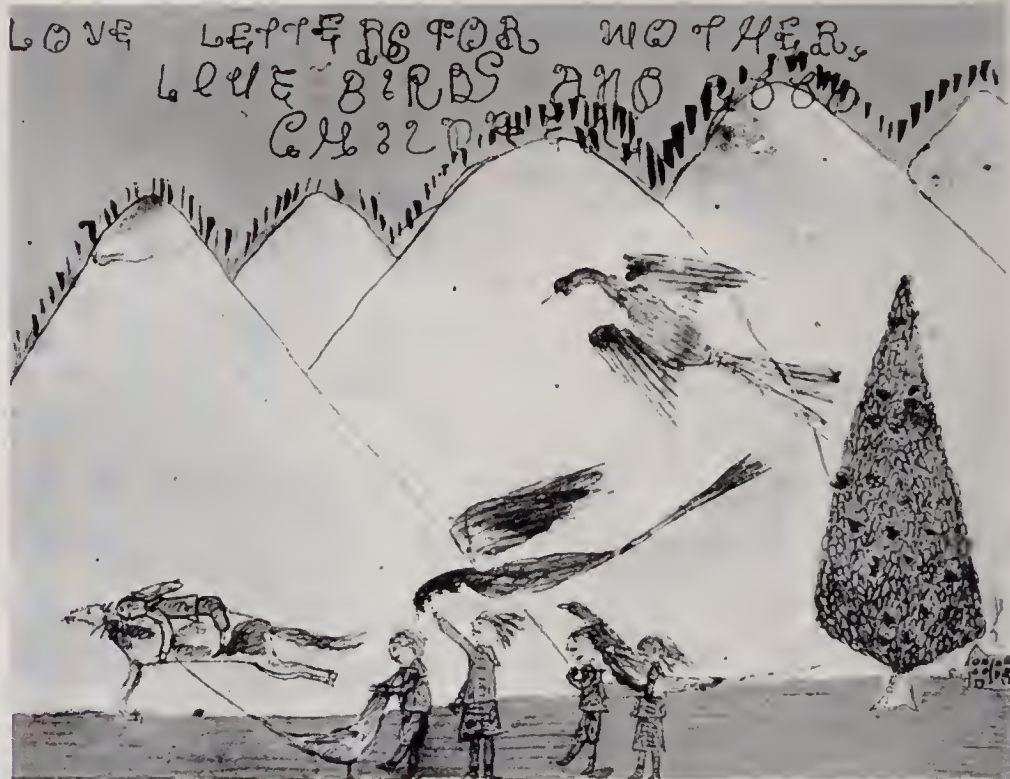 LOVE LETTERS FOR MOTHER,
LOVE BIRDS AND
CHILDREN